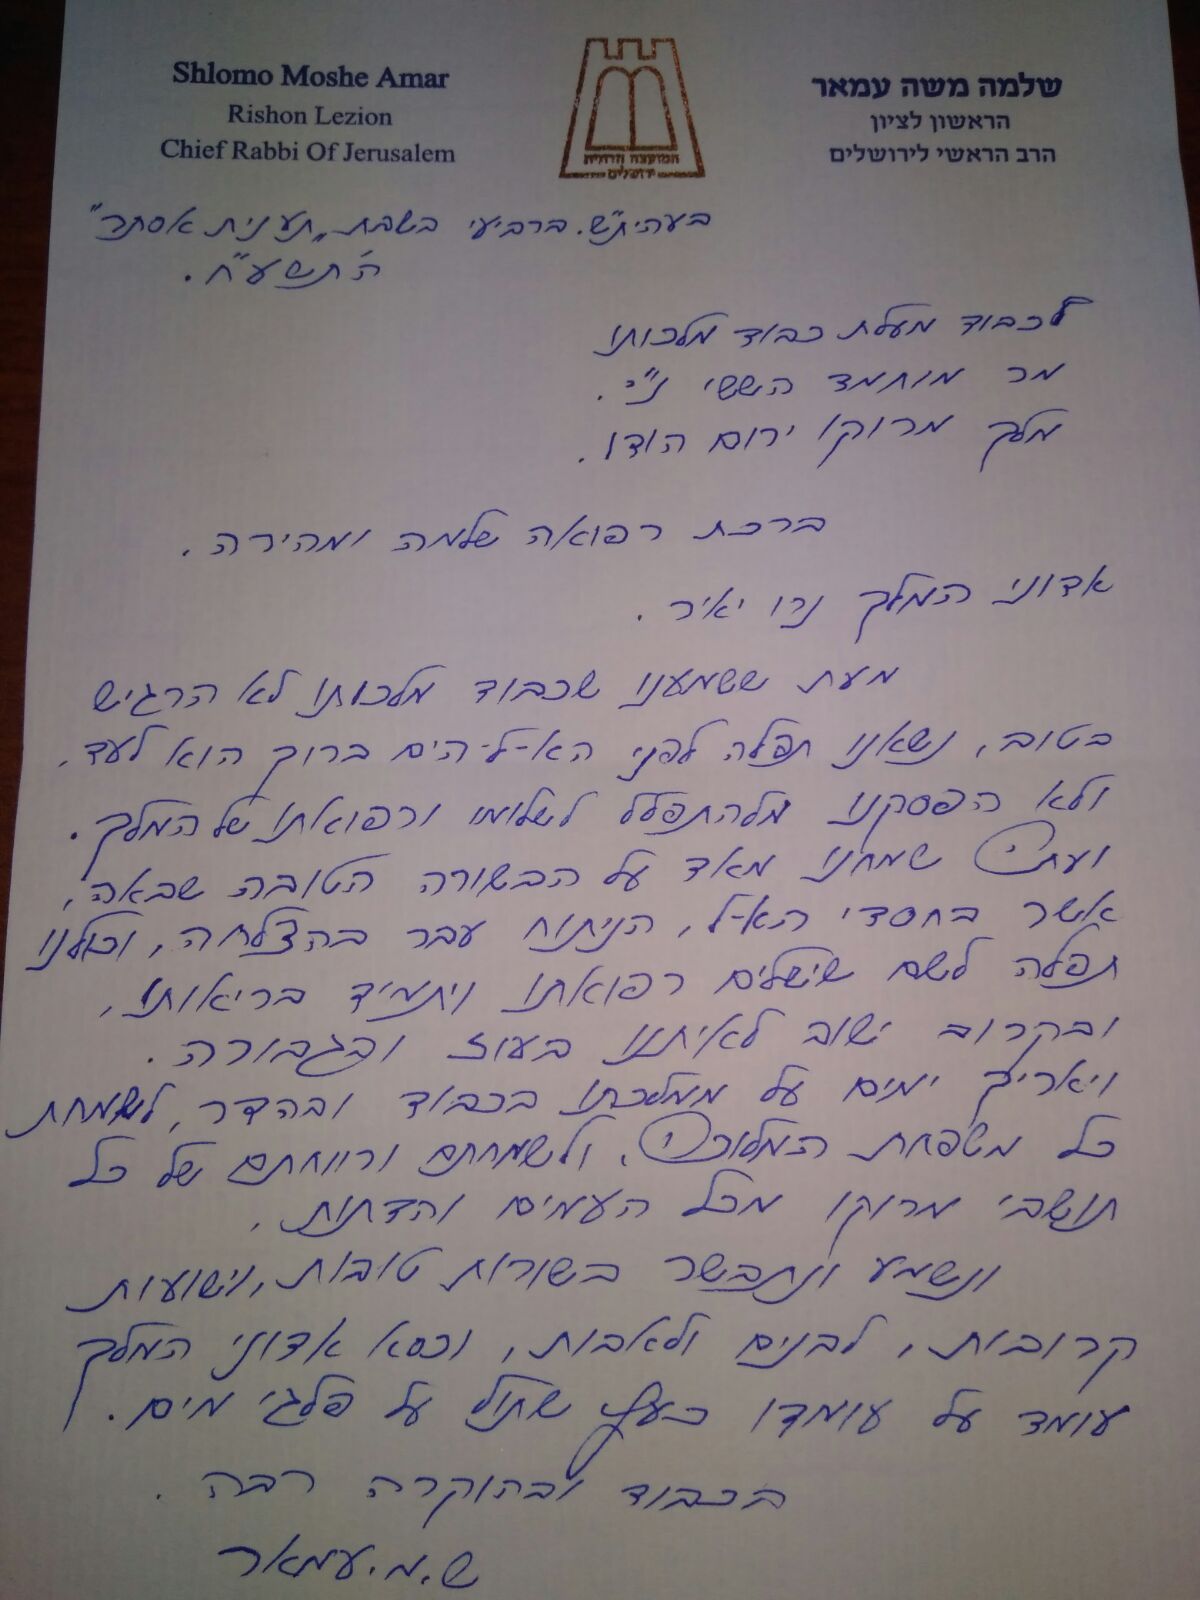 Shlomo Moshe Amar
Rishon Lezion
Chief Rabbi Of Jerusalem
שלמה משה עמאר
הראשון לציון
הרב הראשי לירושלים
המועצה הדתית
ירושלים
בעהית"ש. ברביעי בשבת „תענית אסתר"
ה'תשע"ח.
לכבוד מעלת כבוד מלכותו
מר מוחמד הששי נ"י.
מלך מרוקו ירום הודו.
ברכת רפואה שלמה ומהירה.
אדוני המלך נרו יאיר.
מעת ששמענו שכבוד מלכותו לא הרגיש
בטוב, נשאנו תפלה לפני הא-ל-הים ברוך הוא לעד.
ולא הפסקנו מלהתפלל לשלומו ורפואתו של המלך.
ועתה שמחנו מאד על הבשורה הטובה שבאה,
אשר בחסדי הא-ל, הניתוח עבר בהצלחה, וכולנו
תפלה לשם שישלים רפואתו ויתמיד בריאותו,
ובקרוב ישוב לאיתנו בעוז ובגבורה.
ויאריך ימים על ממלכתו בכבוד ובהדר, לשמחת
כל משפחת המלוכה, ולשמחתם ורווחתם של כל
תושבי מרוקו מכל העמים והדתות,
ונשמע ונתבשר בשורות טובות, וישועות
קרובות, לבנים ולאבות, וכסא אדוני המלך
עומד על עומדו כעץ שתול על פלגי מים.
בכבוד ובהוקרה רבה.
ש.מ.עמאר